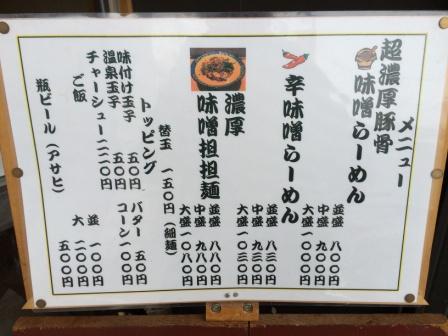 メニュー
超濃厚豚骨
味噌らーめん
並盛 八〇〇円
中盛 九〇〇円
大盛一〇〇〇円
辛味噌らーめん
並盛 八三〇円
中盛 九三〇円
大盛一〇三〇円
濃厚
味噌担担麺
並盛 八八〇円
中盛 九八〇円
大盛一〇八〇円
替玉 一五〇円(細麺)
トッピング
味付け玉子 五〇円
温泉玉子 五〇円
チャーシュー二二〇円
バター 五〇円
コーン一〇〇円
ご飯
並 一〇〇円
大 二〇〇円
瓶ビール(アサヒ) 五〇〇円